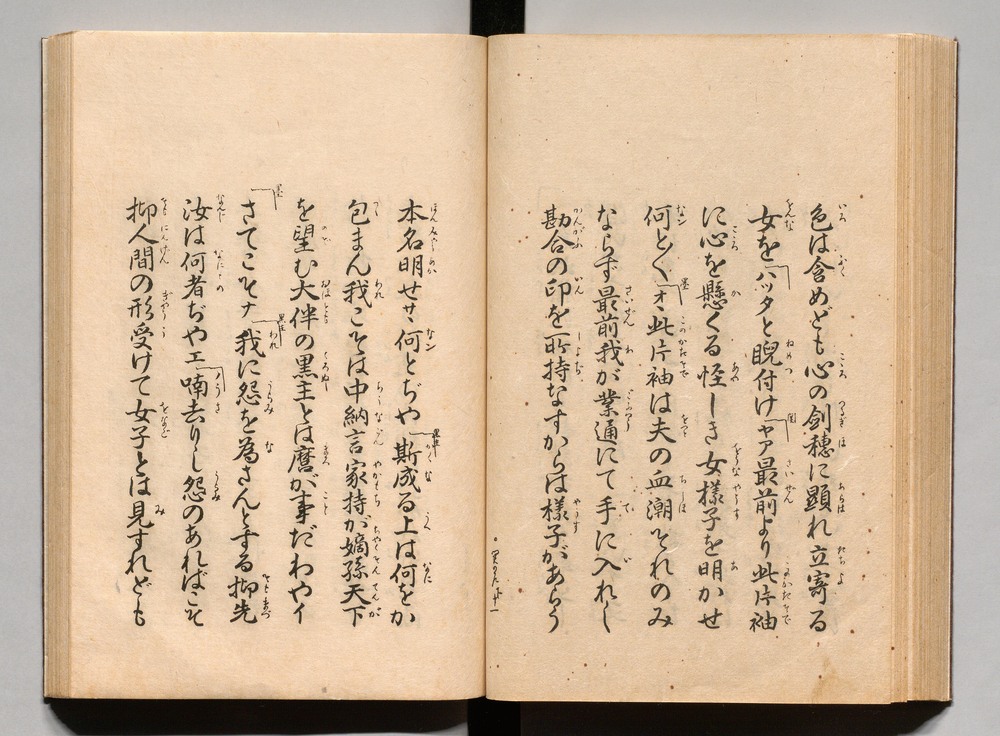 色は含めども心の剣穂に顕れ立寄る
女をハッタと睨付けヤア最前より此片袖
に心を懸くる怪しき女様子を明かせ
何と〱オヽ此片袖は夫の血潮それのみ
ならず最前我が業通にて手に入れし
勘合の印を所持なすからは様子があらう
本名明せサヽ何とぢや斯成る上は何をか
包まん我こそは中納言家持が嫡孫天下
を望む大伴の黒主とは麿が事だわやイ
さてこそナ我に怨を為さんとする抑先
汝は何者ぢやエ喃去りし怨のあればこそ
抑人間の形受けて女子とは見すれども